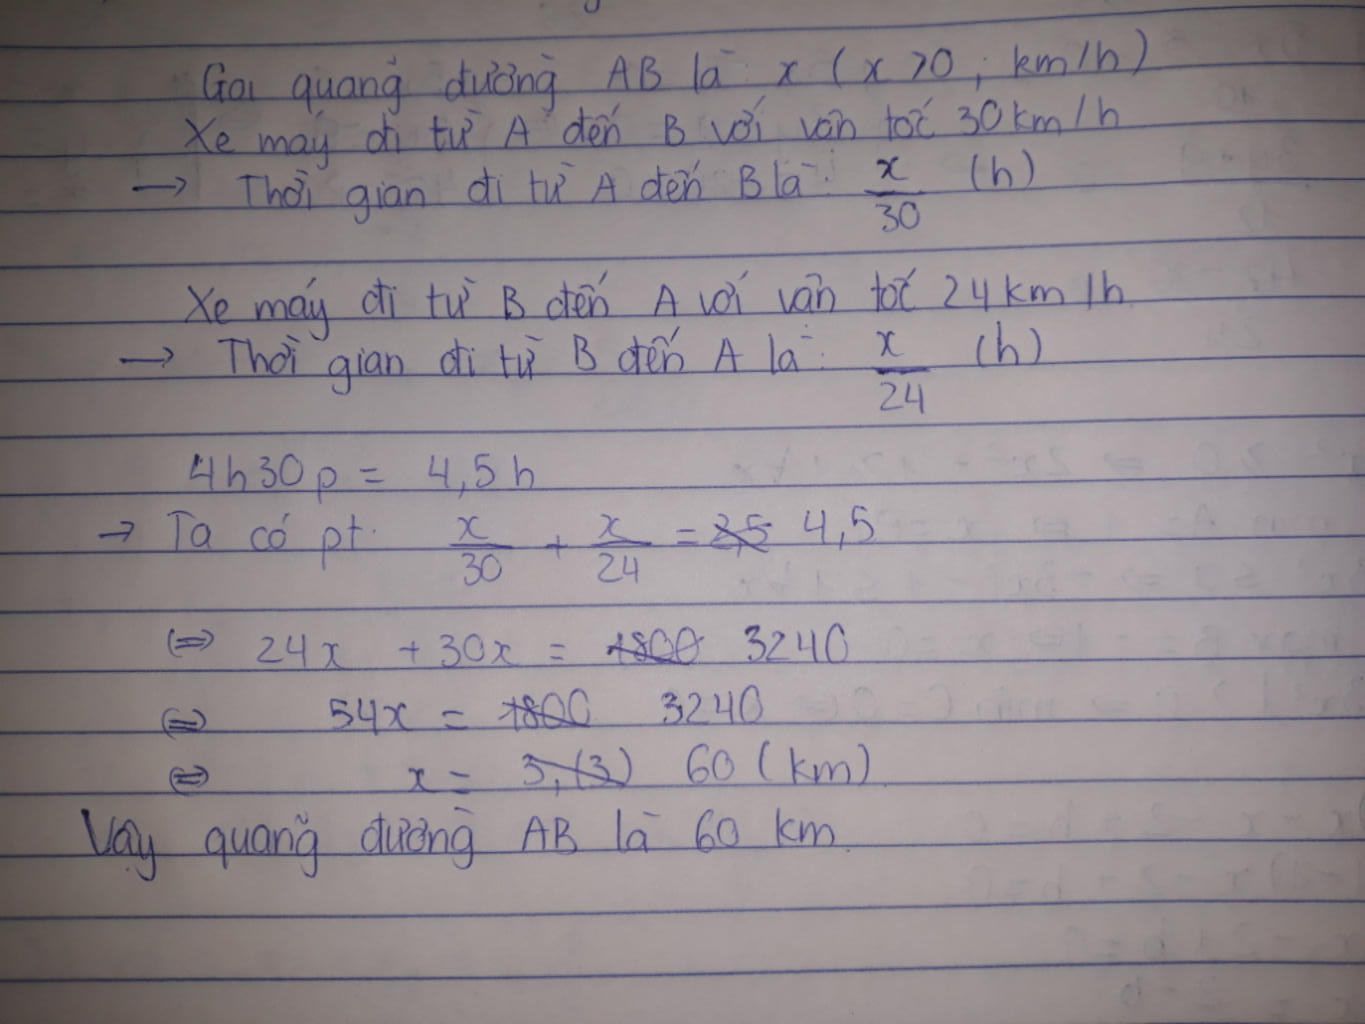 Gọi quãng đường AB là x (x > 0, km/h)
Xe máy đi từ A đến B với vận tốc 30km/h
→ Thời gian đi từ A đến B là: x/30 (h)
Xe máy đi từ B đến A với vận tốc 24km/h
→ Thời gian đi từ B đến A là: x/24 (h)
4h30p = 4,5h
→ Ta có pt: x/30 + x/24 = 2,5 4,5
⇔ 24x + 30x = 1800 3240
⇔ 54x = 1800 3240
⇔ x = 3,(3) 60 (km)
Vậy quãng đường AB là 60 km.